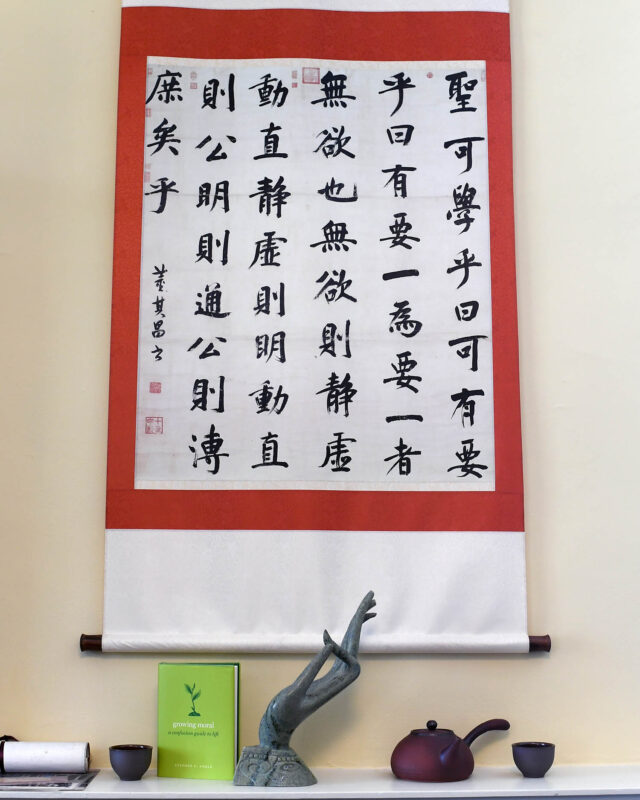 聖可學乎曰可有要
乎曰有要一為要一者
無欲也無欲則静虛
動直静虛則明動直
則公明則通公則溥
庶矣乎
董其昌書
growing moral
a confucian guide to life
STEPHEN C. ANGLE